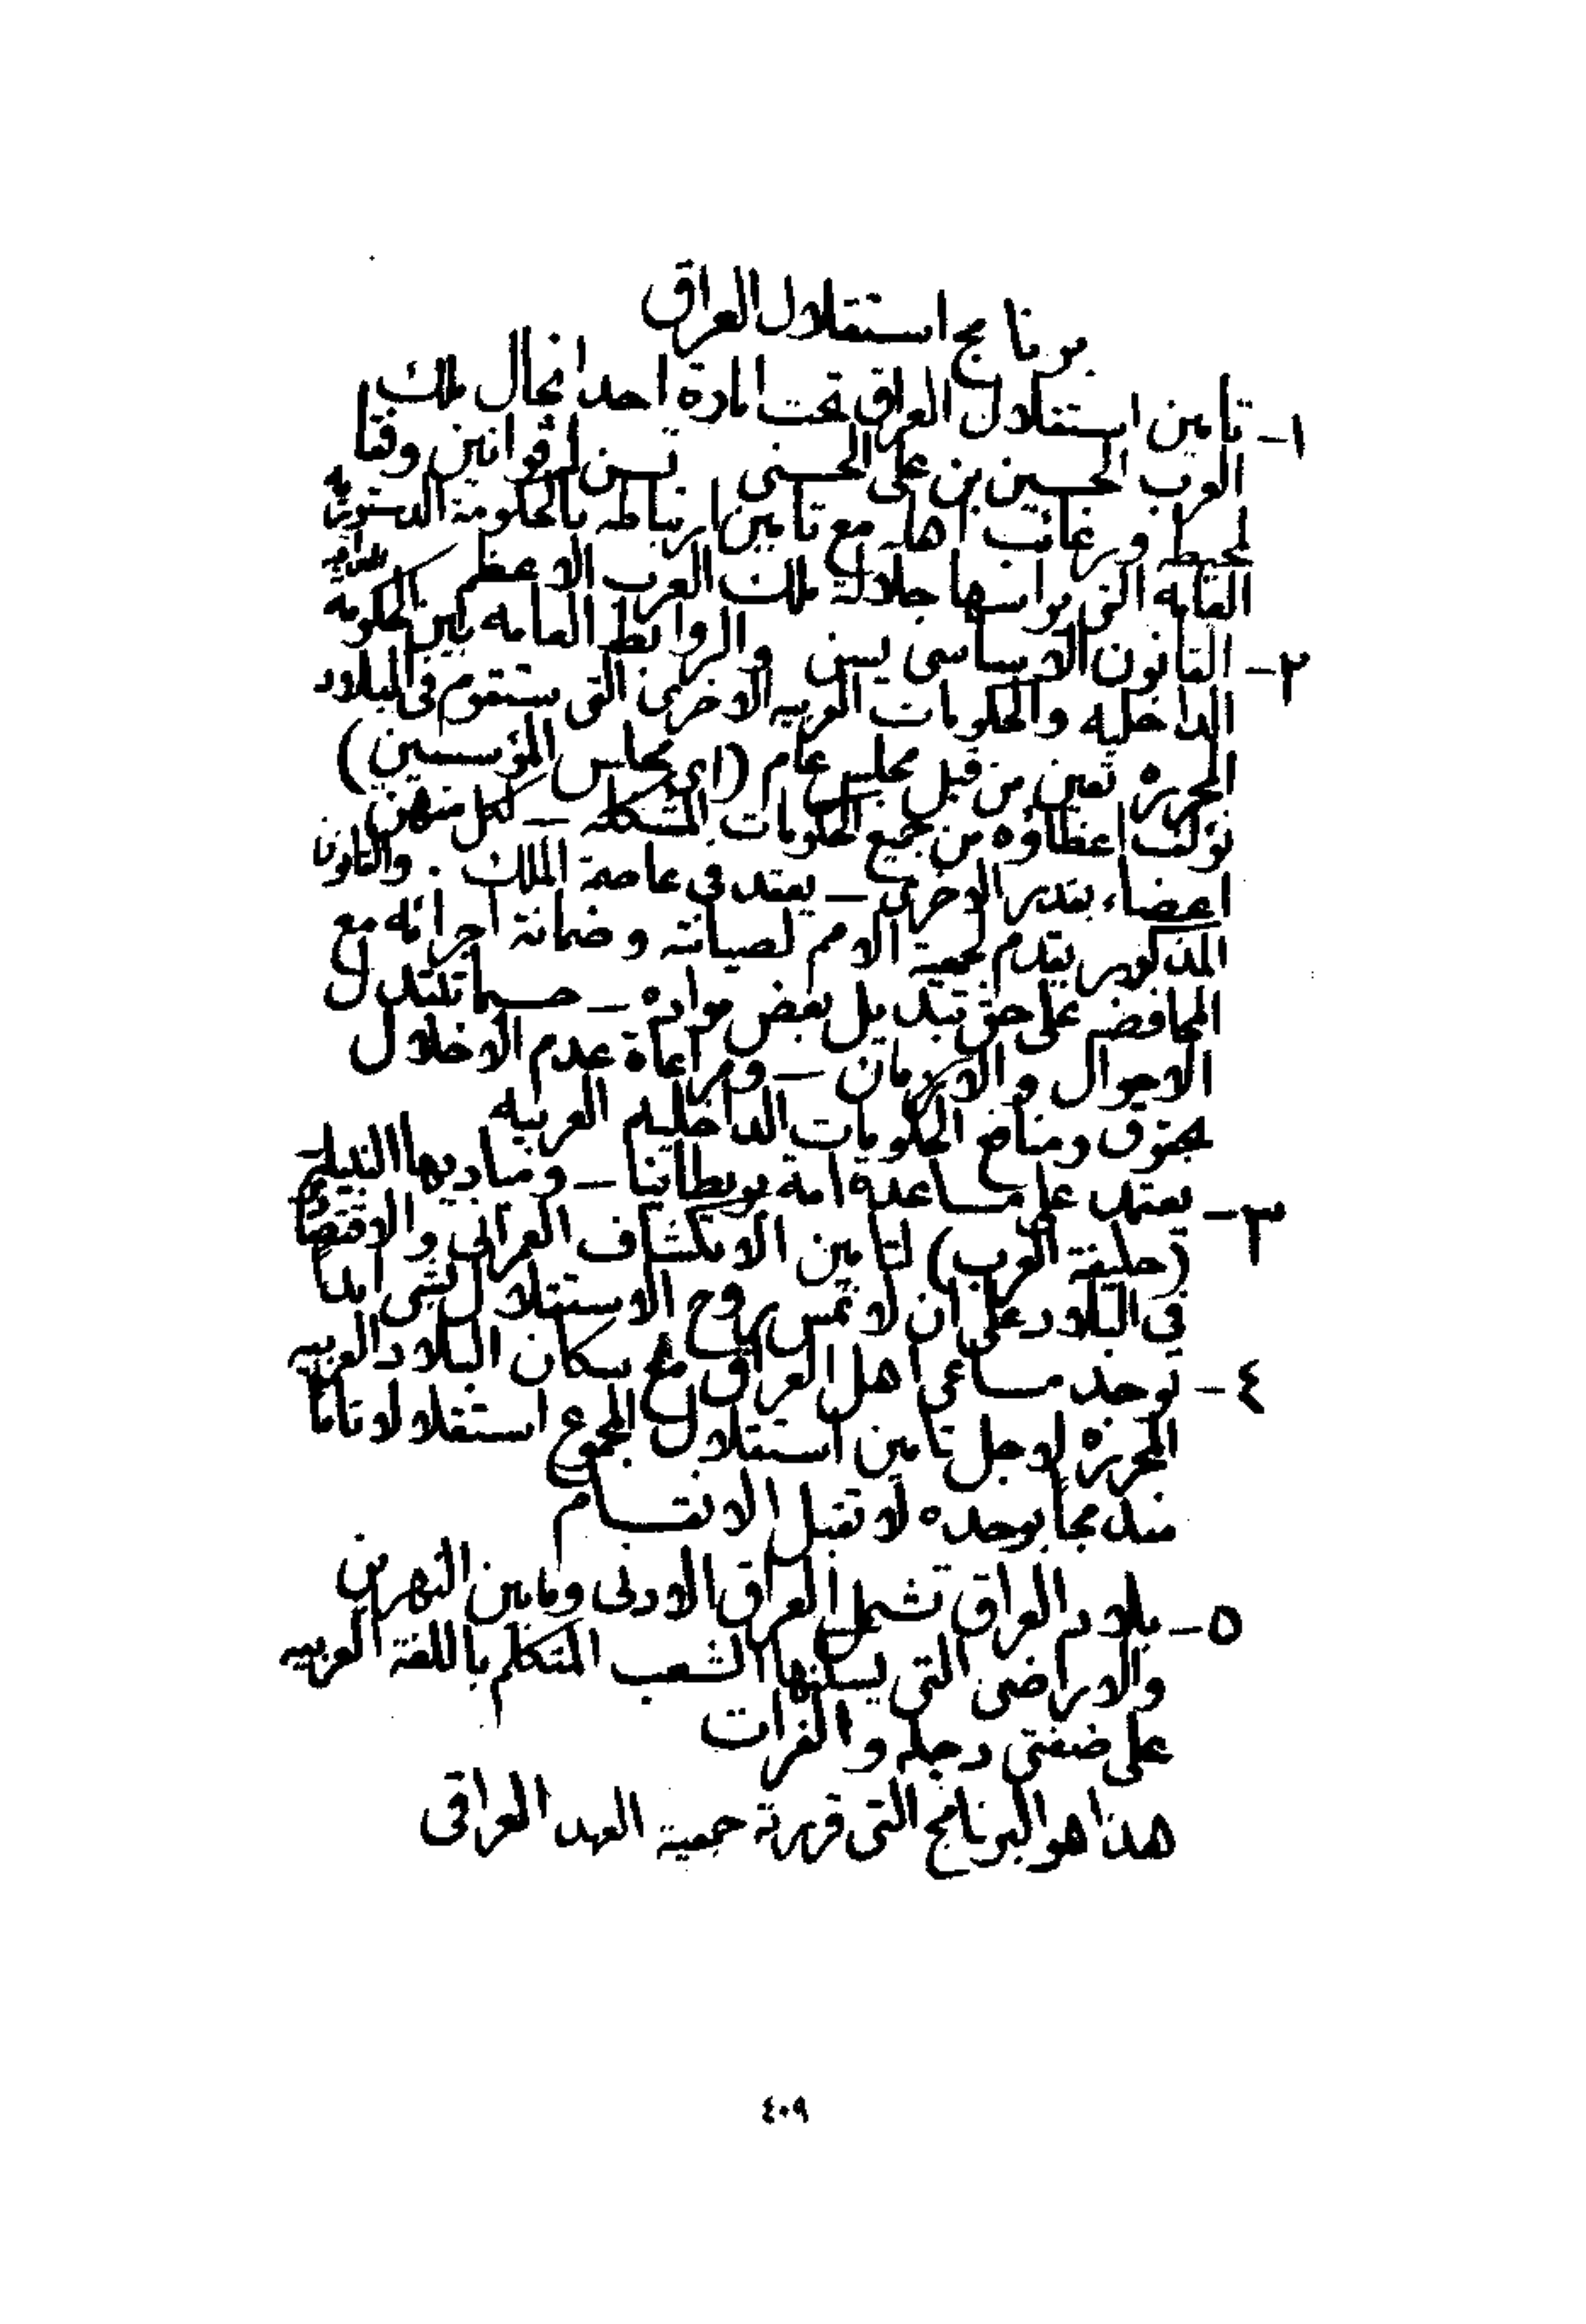 برنامج استقلال العراق
١- تامين استقلال العراق تحت امارة احد انجال ملك
العرب الحسين بن علي الحسني تسن له قوانين وفقا
لمحيطه ورغائب اهله مع تامين ارتباطه بالحكومة الدستوريه
العامه التي يرأسها جلالة ملك العرب الاعظم
٢- القانون الاساسي يسن والروابط العامه بين الحكومه
الداخليه والحكومات العربيه الاخرى التي ستقوم في البلاد
المحرره تعين من قبل مجلس عام (اي مجلس المؤسسين)
تؤلف اعضاؤه من جميع الحكومات المتشكله - لكل منهن
اعضاء بقدر الاخرى - يعقد في عاصمة الملك . والقانون
المذكور يقدم لجمعية الامم لصيانته وضمانة اجرائه مع
المحافضه على حق تبديل بعض مواده - حسما تتبدل
الاحوال والازمان - ومراعاة عدم الاخلال
بحقوق ومنافع الحكومات الداخليه العربيه
٣- يعتمد على مساعدة امة بريطانيا - ومباديها النبيلة
(حليفة العرب) لتامين الانكشاف العمراني والاقتصادي
في البلاد على ان لا تمس روح الاستقلال بشي ابدا
٤- توحد مساعي اهل العراق مع سكان البلاد العربيه
المحرره لاجل تامين استقلال المجموع استقلالا تاما
مندمجا بوحده لا تقبل الانقسام
٥- بلاد العراق تشمل العراق الادنى ومابين النهرين
والاراضي التي يسكنها الشعب المتكلم باللغة العربيه
على ضفتي دجله والفرات
هذا هو البرنامج التي قررته جمعية العهد العراقي
٤٠٩